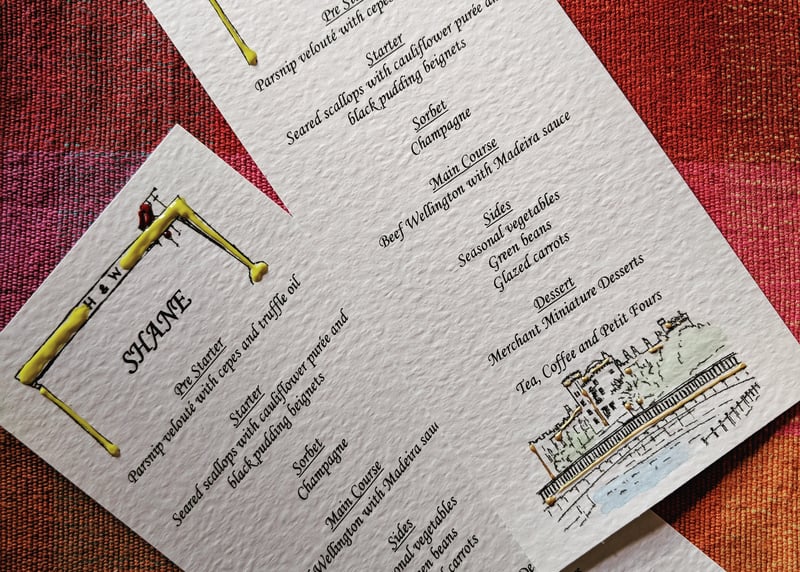 H & W
SHANE
Pre Starter
Parsnip velouté with cepes and truffle oil
Starter
Seared scallops with cauliflower purée and
black pudding beignets
Sorbet
Champagne
Main Course
Wellington with Madeira
Sides
vegetables
beans
carrots
Pre
Parsnip velouté with cepes
Starter
Seared scallops with cauliflower purée
black pudding beignets
Sorbet
Champagne
Main Course
Beef Wellington with Madeira sauce
Sides
Seasonal vegetables
Green beans
Glazed carrots
Dessert
Merchant Miniature Desserts
Tea, Coffee and Petit Fours